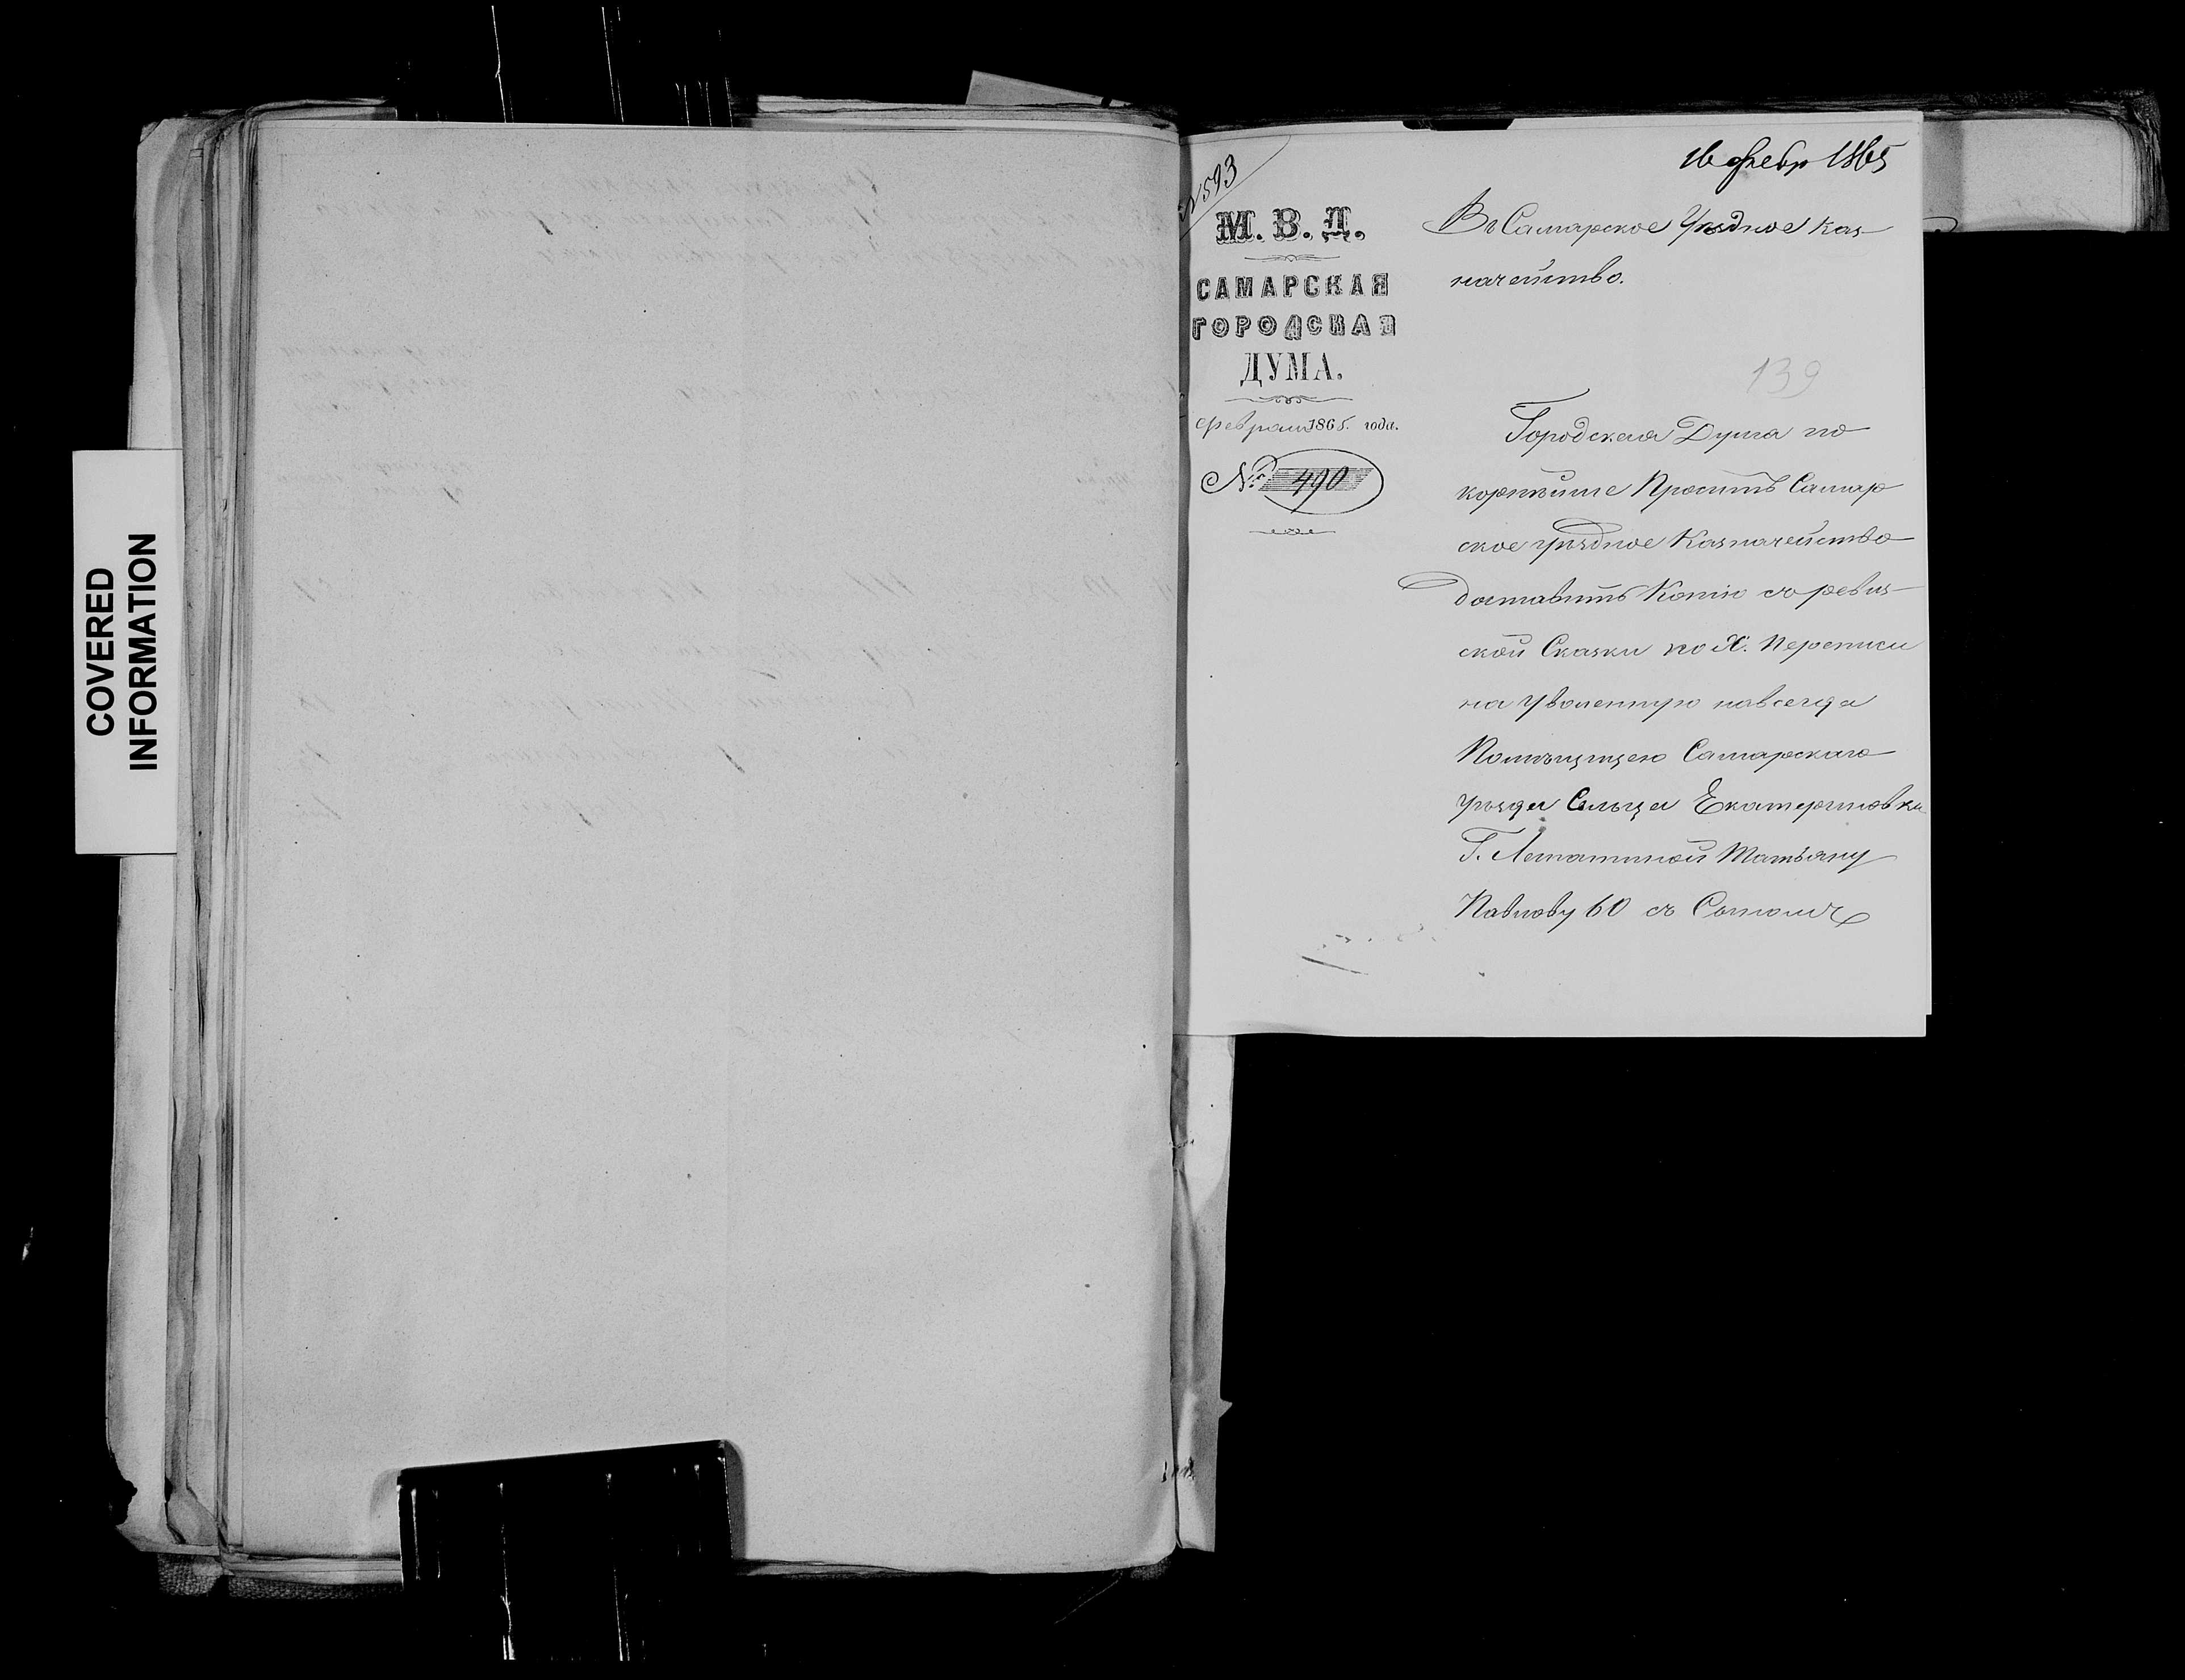 COVERED
INFORMATION
№ 593
16 Февр 1865
М. В. Д.
САМАРСКАЯ
ГОРОДСКАЯ
ДУМА.
Февраля 1865. года.
№ 490
Въ Самарское Уѣздное Каз-
начейство.
139
Городская Дума по
корнѣйше Проситъ Самар
ское уѣздное Казначейство
доставить Копію съ ревиз-
ской Сказки по X. Переписи
на Уволенную навсегда
Помѣщицею Самарскаго
уѣзда Сельца Екатериновки
Г. Татьяну
Павлову 60 съ Сыномъ